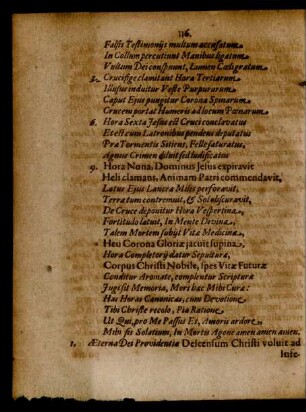 116.
Falsis Testimonijs multum accusatum
In Collum percutiunt Manibus ligatum
Vultum Dei conspuunt, Lumen Cæli gratum
3. Crucifige clamitant Hora Tertiarum
Illusus induitur Veste Purpurarum
Caput Ejus pungitur Corona Spinarum
Crucem portat Humeris ad locum Pœnarum
6. Hora Sexta Jesus est Cruci conclavatus
Et est cum Latronibus pendens deputatus
Præ Tormentis Sitiens, Felle saturatus,
Agnus Crimen diluit sed ludificatus
9. Hora Nona, Dominus Jesus expiravit
Heli clamans, Animam Patri commendavit,
Latus Ejus Lancea Miles perforavit,
Terra tum contremuit, & Sol obscuravit,
De Cruce deponitur Hora Vespertina,
Fortitudo latuit, In Mente Divina,
Talem Mortem subijt Vitæ Medicina
Heu Corona Gloriæ jacuit supina,
Hora Completorij datur Sepultura,
Corpus Christi Nobile, spes Vitæ Futuræ
Conditur Aromate, complentur Scripturæ
Jugi sit Memoria, Mori hæc Mihi Cura:
Has Horas Canonicas, cum Devotione
Tibi Christe recolo, Pia Ratione
Ut Qui, pro Me Passus Es, Amoris ardore
Mihi sis Solatium, In Mortis Agone amen amen amen.
1. Æterna Dei Providentia Descensum Christi voluit ad
Infe-